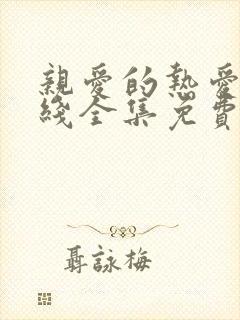 親愛的熱愛
綫全集免費
聶詠梅